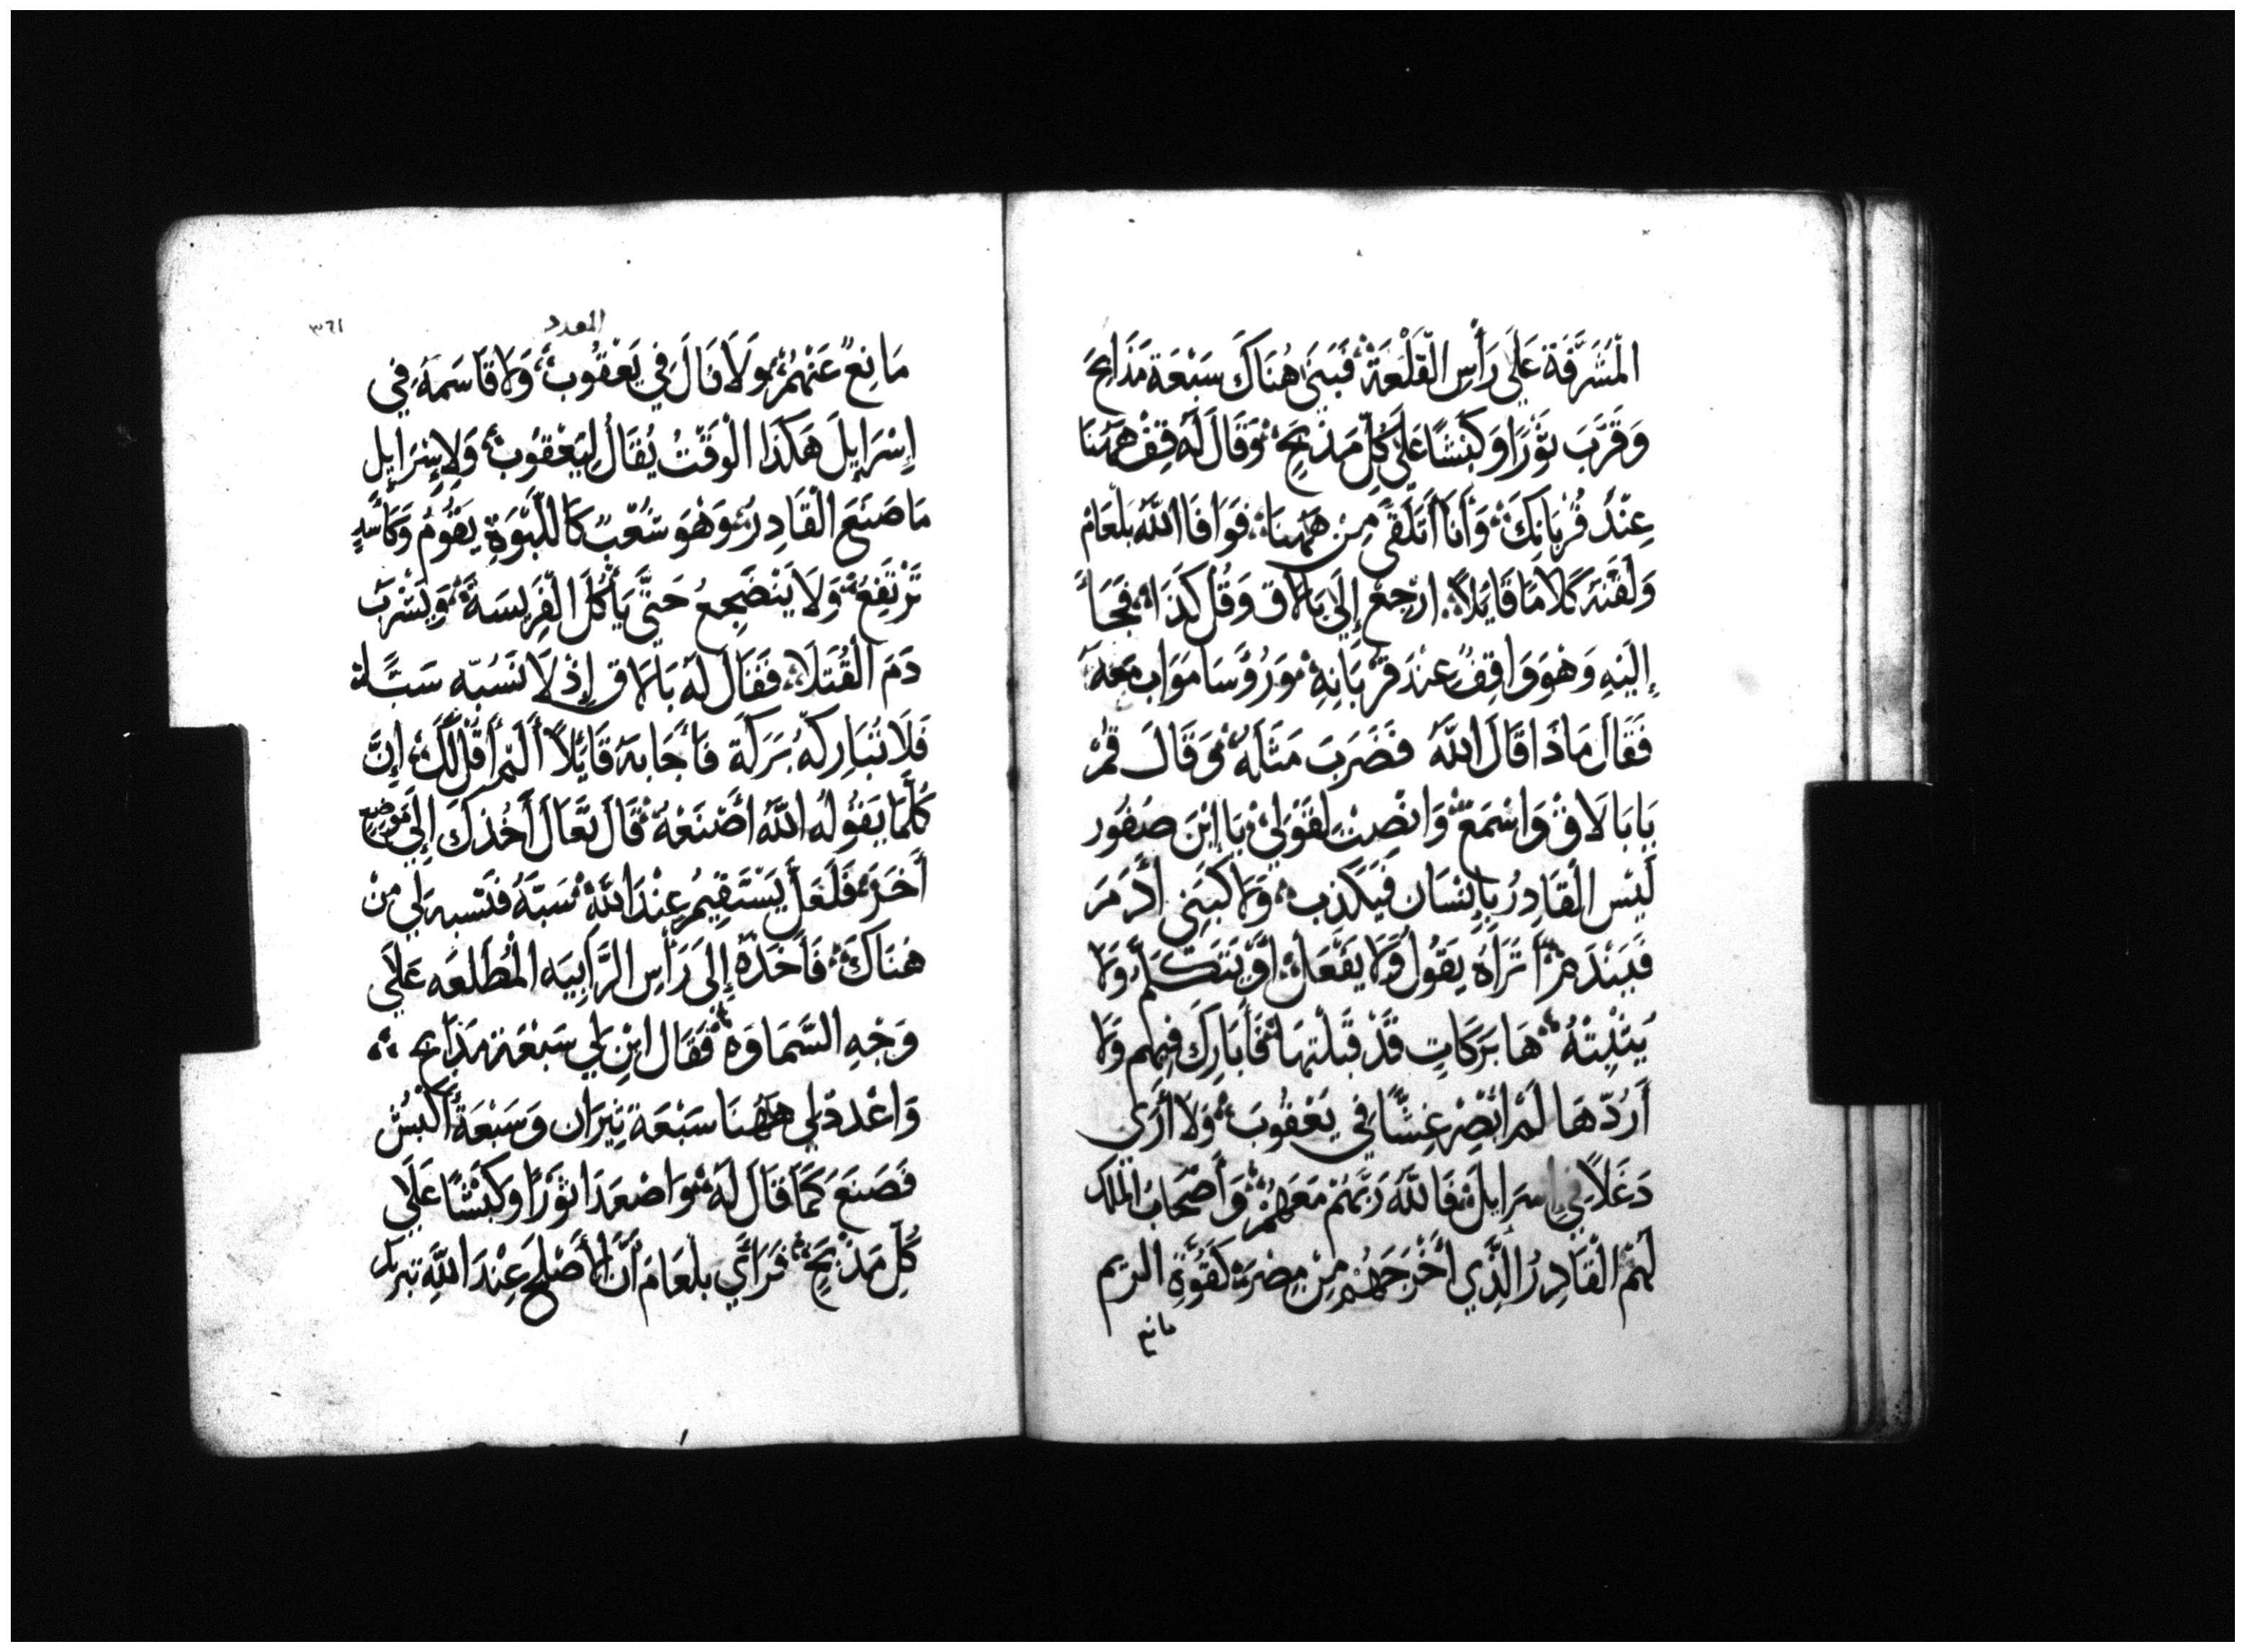 الْمَشَرَّفَة عَلَي رَأْسِ الْقَلْعَةْ فَبَنَي هُنَاكَ سَبْعَة مَذَابِحَ
وَقَرَّبَ ثَوْرًا وَكَبْشًا عَلَي كُلِّ مَذْبَحٍ وَقَالَ لَهُ قِفْ هَهُنَا
عِنْدَ قُرْبَانِكَ وَأَنَا أَتَلَقَّي مِنْ هَهُنَا فَوَافَا اللَّهُ بلْعَامْ
وَلَقَّنَهُ كَلَامًا قَايَلاً ارْجِعْ إِلَي بَالَاق وَقُل كَذَا فَجَأَ
إِلَيْهِ وَهْوَ وَاقِفٌ عِنْدَ قرْبَانِهِ وَرُؤسَا مَوَاب مَعَهُ
فَقَالَ مَاذَا قَالَ اللَّهُ فَضَرَبَ مَثَلَهُ وَقَالَ قُمْ
يَا بَالَاقْ وَاسْمَعْ وَانْصِتْ لِقَوْلِي يَا ابْنَ صَفُور
لَيْسَ الْقَادِرُ بِإِنْسَان فَيَكْذِب وَلَا كَبَنِي أَدَمَ
فَيَنْدَمْ أَتَرَاهُ يَقُولُ وَلَا يَفْعَلْ أَوْ يَتَكَلَّمُ وَلَا
يُثْبِتْهُ هَا بَرَكَاتِ قَدْ قَبَلْتهَا فَأَبَارِكَ فِيهِم وَلَا
أَرُدّهَا لَمْ ابْصِرْ غِشًّا فِي يَعْقُوبَ وَلَا أَرَي
دَغَلاً فِي إسرَايلَ فَاللَّهُ رَبَّهُمْ مَعَهُمْ وَأَصْحَابَ الْمَلِك
لَهُمْ الْقَادِرُ الَّذِي أَخْرَجَهُمْ مِنْ مِصْرَ كَقُوَّةِ الريم
مانع
العدد
٣٦١
مَانِعٌ عَنْهُمْ وَلَا فَالَ فِي يَعْقُوبْ وَلَا قَاسَمَةَ فِي
إِسْرَايلَ هَكَذَا الْوَقْتْ يُقَالُ لِيَعْقُوبْ وَلِإسْرَايِل
مَا صَنَعَ الْقَادِرُ وَهْوَ شُعْبٌ كَاللَّبْوَةِ يَقُومُ وَكَأَسَدٍ
تَرْتَفِعُ وَلَا يَنْضَجِعُ حَتَّي يَأْكُلَ الْفَرِيسَةْ وَيَشْرَبَ
دَمَ الْقُتَلَا فَقَالَ لَهُ بَالَاق إِذْ لَا تَسُبّه سَبًّا
فَلَا تُبَارِكَهُ بَرَكَة فَأَجَابَهُ قَايَلاً أَلَمْ أَقُلْ لَكَ إِنَّ
كُلَّمَا يَقُولُهُ اللَّهُ أَصْنَعَهُ قَالَ تَعَالَ أَخُذكَ إِلَي مَوْضِعٍ
أَخَرَ فَلَعَلَّ يَسْتَقِيمُ عِنْدَ اللَّهْ سَبَّهُ فَتَسْبه لِي مِنْ
هُنَاكَ فَأَخَذَهُ إِلَي رَأْسِ الرَّابِيَه الْمُطَلعَه عَلَي
وَجْهِ السَّمَاوَه فَقَالَ ابْنِ لِي سَبْعَة مَذَابِح
وَاعْدد لِي هَهُنَا سَبْعَة ثِيرَان وَسَبْعَةُ أَكْبُش
فَصَنَعَ كَمَا قَالَ لَهُ وَاصْعَدَا ثَوْرًا وَكَبْشًا عَلَي
كُلِّ مَذْبَحٍ فَرَأَي بلْعَامْ أَنَّ الأَصْلَحَ عِنْدَ اللَّهِ تبريك